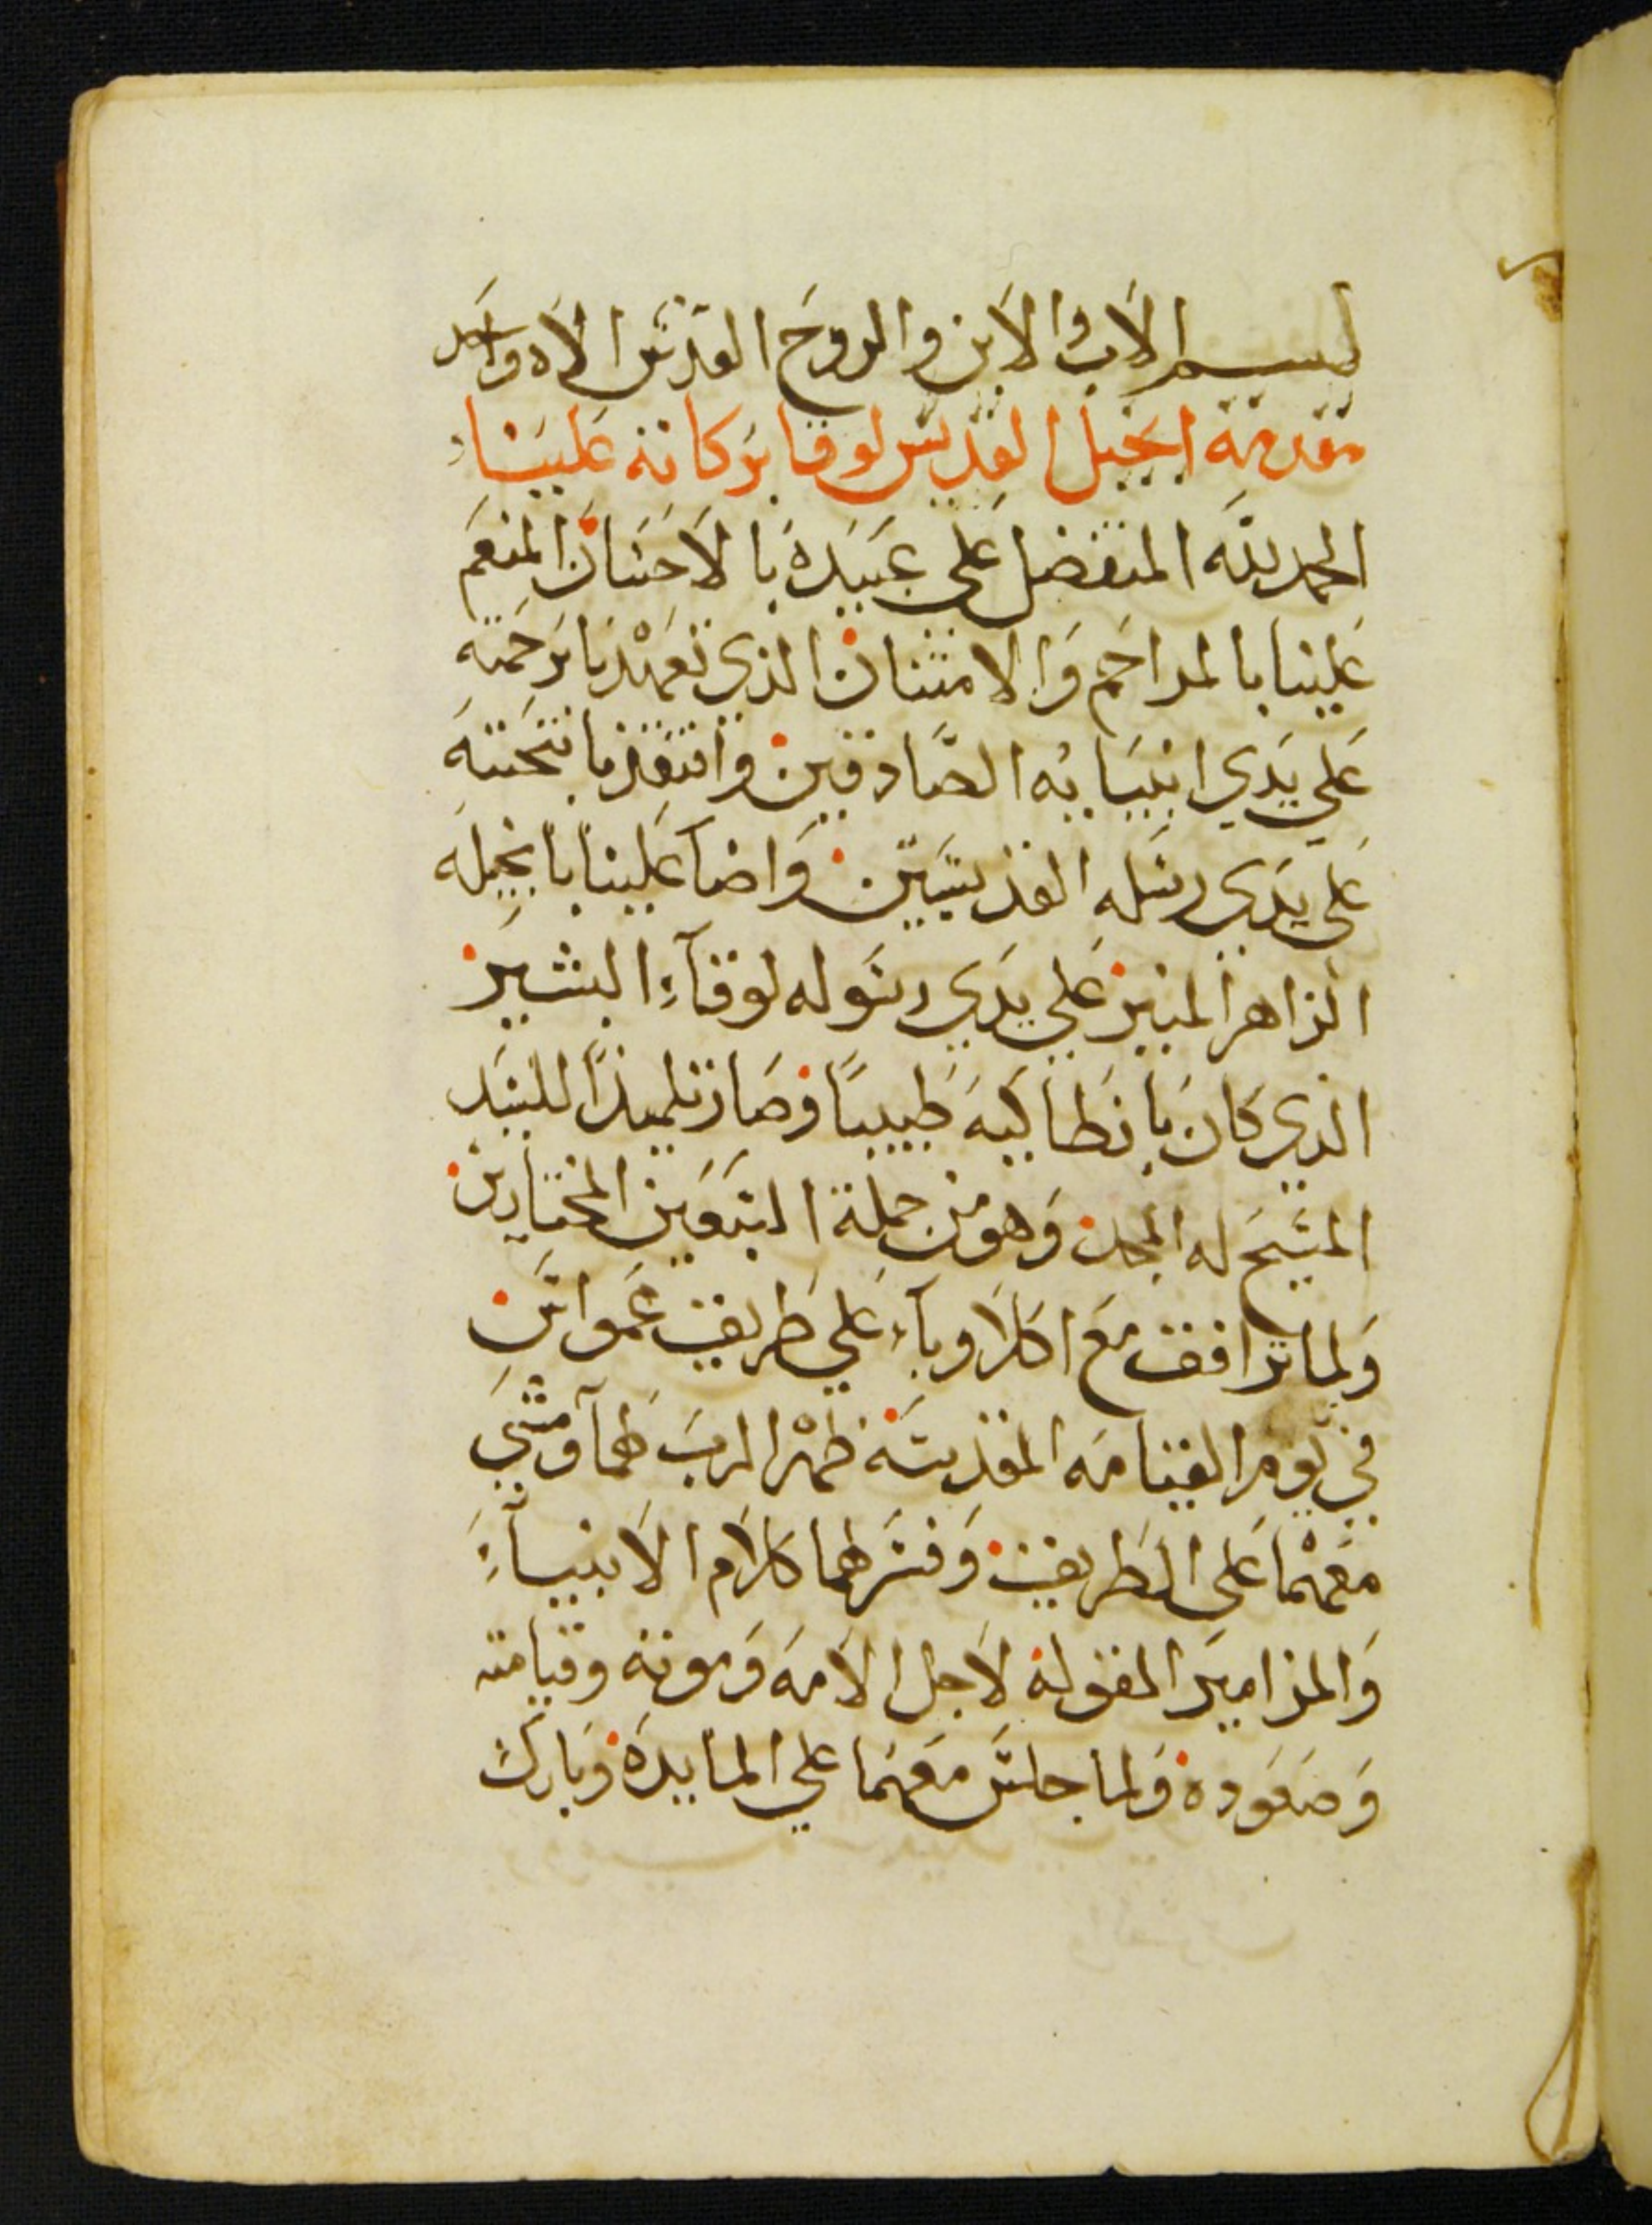 بسم الاب والابن والروح القدس الاه واحد
مقدمة انجيل القديس لوقا بركاته علينا
الحمد لله المتفضل علي عبيده بالاحسان المنعم
علينا بالمراحم والامتنان الذي تعهدنا برحمته
علي يدي انبيايه الصادقين وافتقدنا بتحننه
علي يدي رسله القديسين واضآ علينا بانجيله
الزاهر المنير علي يدي رسوله لوقآء البشير
الذي كان بانطاكيه طبيبًا وصار تلميذًا للسيد
المسيح له المجد وهو من جملة السبعين المختارين
ولما ترافق مع اكلاوبآء علي طريق عمواس
في يوم القيامه المقدسه ظهر الرب لهمآ ومشي
معهما علي الطريق وفسر لهما كلام الانبيآء
والمزامير المقوله لاجل الامه وموته وقيامته
وصعوده ولما جلس معهما علي المايده وبارك